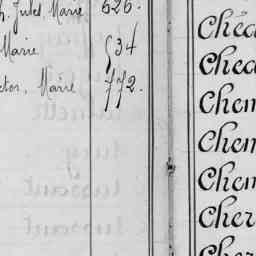 h. Jules, Marie 626.
Marie 534
ctor, Marie 772.
Chéd
Chéd
Chem
Chem
Chem
Cher
Cher